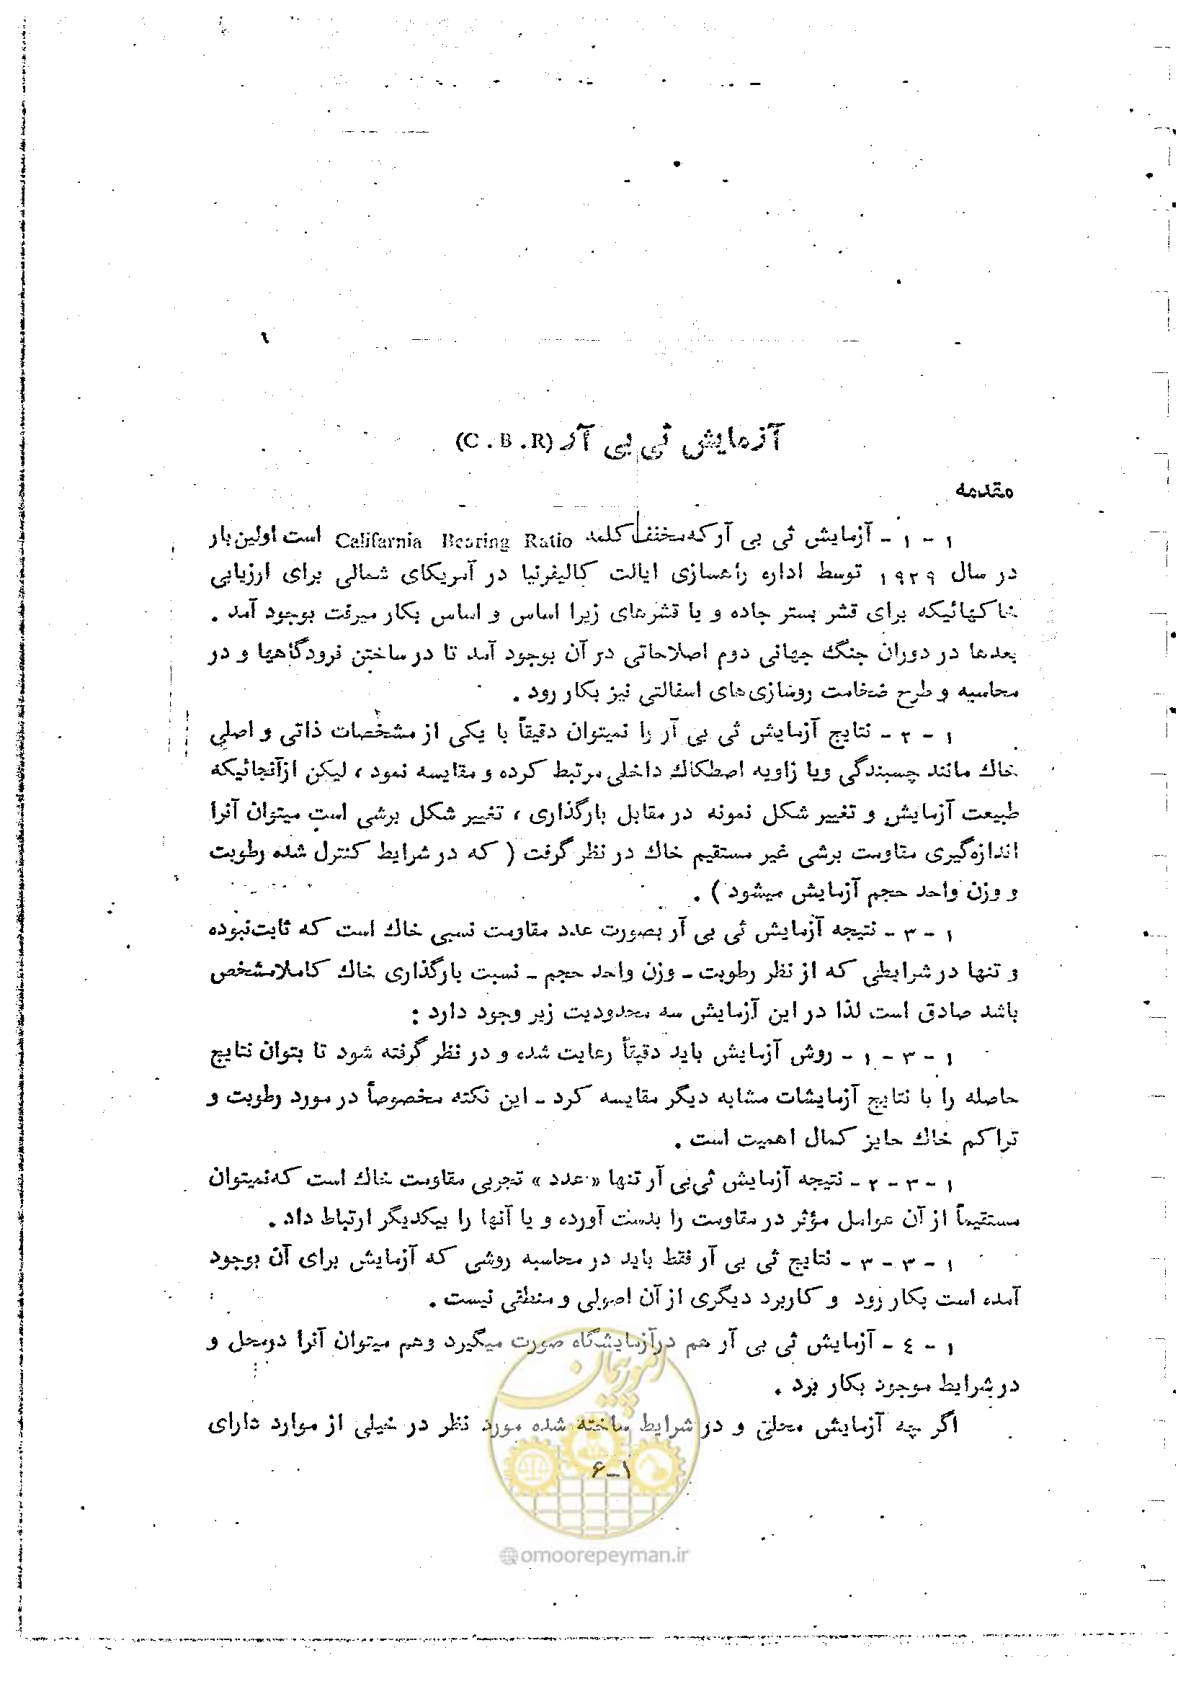 ٦
آزمایش ثی بی آر (C . B . R)
مقدمه
۱ - ۱ - آزمایش ثی بی آر که مخفف کلمه Califarnia Bearing Ratio است اولین بار
در سال ۱۹۲۹ توسط اداره راهسازی ایالت کالیفرنیا در آمریکای شمالی برای ارزیابی
خاکهائیکه برای قشر بستر جاده و یا قشرهای زیرا اساس و اساس بکار میرفت بوجود آمد .
بعدها در دوران جنگ جهانی دوم اصلاحاتی در آن بوجود آمد تا در ساختن فرودگاهها و در
محاسبه و طرح ضخامت روسازی‌های اسفالتی نیز بکار رود .
۱ - ۲ - نتایج آزمایش ثی بی آر را نمیتوان دقیقاً با یکی از مشخصات ذاتی و اصلی
خاک مانند چسبندگی ویا زاویه اصطکاک داخلی مرتبط کرده و مقایسه نمود ، لیکن ازآنجائیکه
طبیعت آزمایش و تغییر شکل نمونه در مقابل بارگذاری ، تغییر شکل برشی است میتوان آنرا
اندازه‌گیری مقاومت برشی غیر مستقیم خاک در نظر گرفت ( که در شرایط کنترل شده رطوبت
و وزن واحد حجم آزمایش میشود ) .
۱ - ۳ - نتیجه آزمایش ثی بی آر بصورت عدد مقاومت نسبی خاک است که ثابت نبوده
و تنها در شرایطی که از نظر رطوبت - وزن واحد حجم - نسبت بارگذاری خاک کاملا مشخص
باشد صادق است لذا در این آزمایش سه محدودیت زیر وجود دارد :
۱ - ۳ - ۱ - روش آزمایش باید دقیقاً رعایت شده و در نظر گرفته شود تا بتوان نتایج
حاصله را با نتایج آزمایشات مشابه دیگر مقایسه کرد - این نکته مخصوصاً در مورد رطوبت و
تراکم خاک حایز کمال اهمیت است .
۱ - ۳ - ۲ - نتیجه آزمایش ثی‌بی آر تنها «عدد» تجربی مقاومت خاک است که نمیتوان
مستقیماً از آن عوامل مؤثر در مقاومت را بدست آورده و یا آنها را بیکدیگر ارتباط داد .
۱ - ۳ - ۳ - نتایج ثی بی آر فقط باید در محاسبه روشی که آزمایش برای آن بوجود
آمده است بکار رود و کاربرد دیگری از آن اصولی و منطقی نیست .
۱ - ٤ - آزمایش ثی بی آر هم درآزمایشگاه صورت میگیرد وهم میتوان آنرا درمحل و
در شرایط موجود بکار برد .
اگر چه آزمایش محلی و در شرایط ساخته شده مورد نظر در خیلی از موارد دارای
۶-۱
امور پیمان
@omoorepeyman.ir